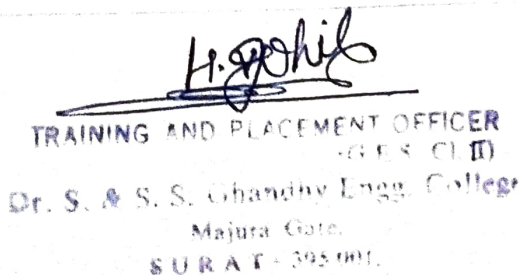 H. Gohil
TRAINING AND PLACEMENT OFFICER
(G.E.S. Cl. II)
Dr. S. & S. S. Ghandhy Engg. College
Majura Gate,
SURAT - 395 001.